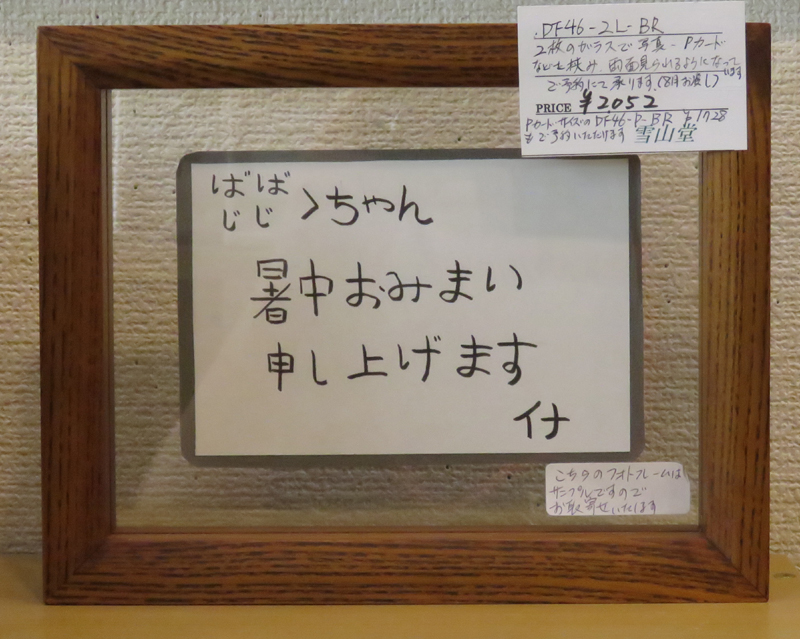 DF46-2L-BR
2枚のガラスで写真・Pカード
などを挟み 両面見られるようになって
います
ご予約にて承ります。(8月お渡し)
PRICE ¥2052
PカードサイズのDF46-P-BR ¥1728
もご予約いただけます 雪山堂
ばば
じじ >ちゃん
暑中おみまい
申し上げます
イナ
こちらのフォトフレームは
サンプルですので
お取寄せいたします